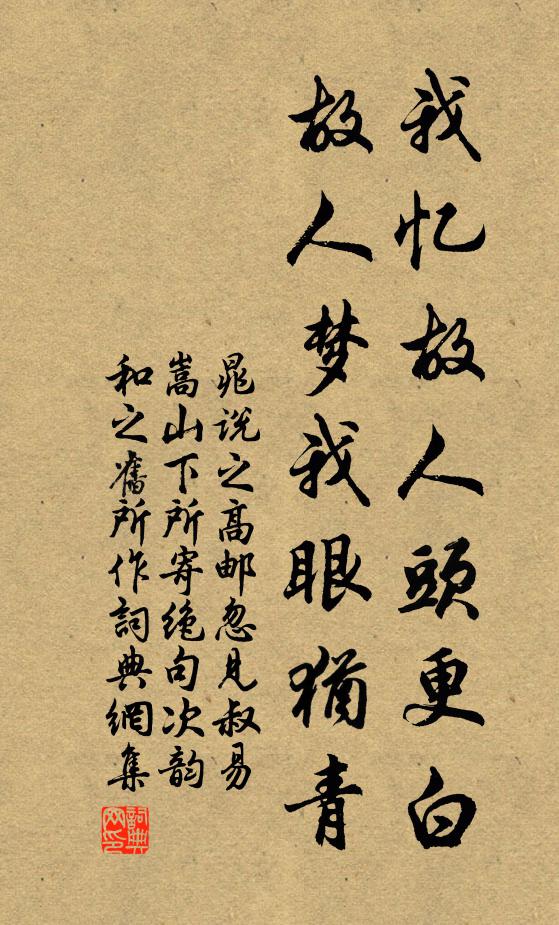 我忆故人頭更白
故人梦我眼猶青
晁说之高邮忽见叔易
嵩山下所寄绝句次韵
和之舊所作詞典網集
詞典
网印